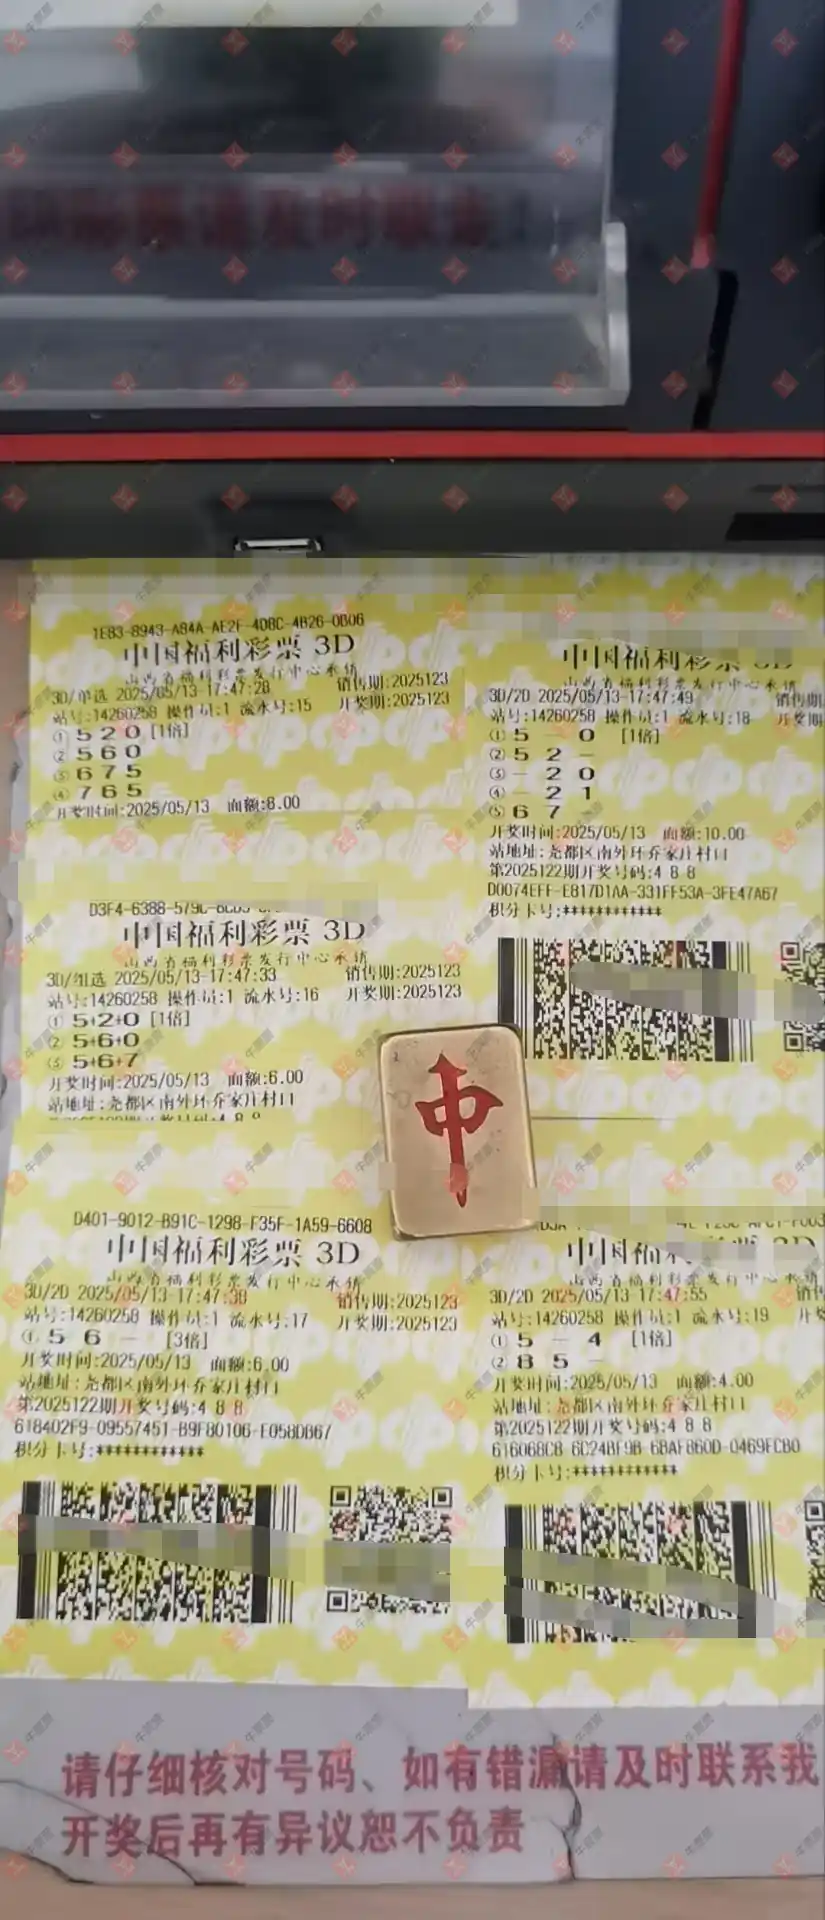 1EB3-8943-A84A-AE2F-4D8C-4B26-0B06
中国福利彩票 3D
山西省福利彩票发行中心承销
3D/单选 2025/05/13-17:47:28 销售期:2025123
站号:14260258 操作员:1 流水号:15 开奖期:2025123
① 5 2 0 [1倍]
② 5 6 0
③ 6 7 5
④ 7 6 5
开奖时间:2025/05/13 面额:8.00
D3F4-6388-579C-
中国福利彩票 3D
山西省福利彩票发行中心承销
3D/组选 2025/05/13-17:47:33 销售期:2025123
站号:14260258 操作员:1 流水号:16 开奖期:2025123
① 5+2+0 [1倍]
② 5+6+0
③ 5+6+7
开奖时间:2025/05/13 面额:6.00
站地址:尧都区南外环乔家庄村口
D401-9012-B91C-1298-F35F-1A59-6608
中国福利彩票 3D
山西省福利彩票发行中心承销
3D/2D 2025/05/13-17:47:38 销售期:2025123
站号:14260258 操作员:1 流水号:17 开奖期:2025123
① 5 6 - [3倍]
开奖时间:2025/05/13 面额:6.00
站地址:尧都区南外环乔家庄村口
第2025122期开奖号码:4 8 8
618402F9-09557451-B9F80106-E058DB67
积分卡号:************
中国福利彩票 3D
山西省福利彩票发行中心承销
3D/2D 2025/05/13-17:47:49 销售期
站号:14260258 操作员:1 流水号:18 开奖期
① 5 - 0 [1倍]
② 5 2 -
③ - 2 0
④ - 2 1
⑤ 6 7
开奖时间:2025/05/13 面额:10.00
站地址:尧都区南外环乔家庄村口
第2025122期开奖号码:4 8 8
D0074EFF-E817D1AA-331FF53A-3FE47A67
积分卡号:************
中
中国福利彩票 3D
山西省福利彩票发行中心承销
3D/2D 2025/05/13-17:47:55 销售
站号:14260258 操作员:1 流水号:19 开奖
① 5 - 4 [1倍]
② 8 5 -
开奖时间:2025/05/13 面额:4.00
站地址:尧都区南外环乔家庄村口
第2025122期开奖号码:4 8 8
616068C8-6C24BF9B-6BAF860D-0469ECB0
积分卡号:************
请仔细核对号码、如有错漏请及时联系我
开奖后再有异议恕不负责